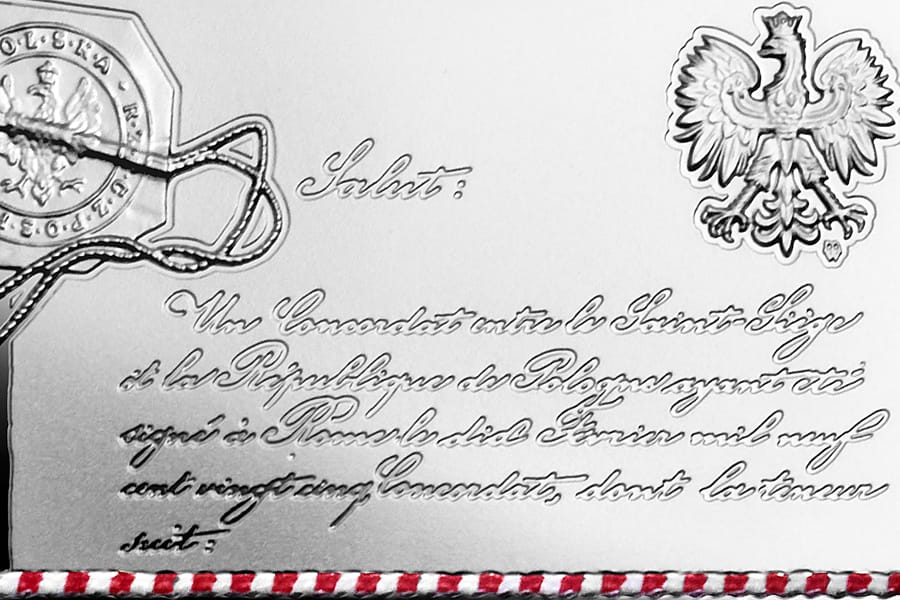 POLSKA · RZECZPOSP
Salut:
Un Concordat entre le Saint-Siège
et la République de Pologne ayant été
signé à Rome le dix Février mil neuf
cent vingt cinq, Concordat, dont la teneur
suit: